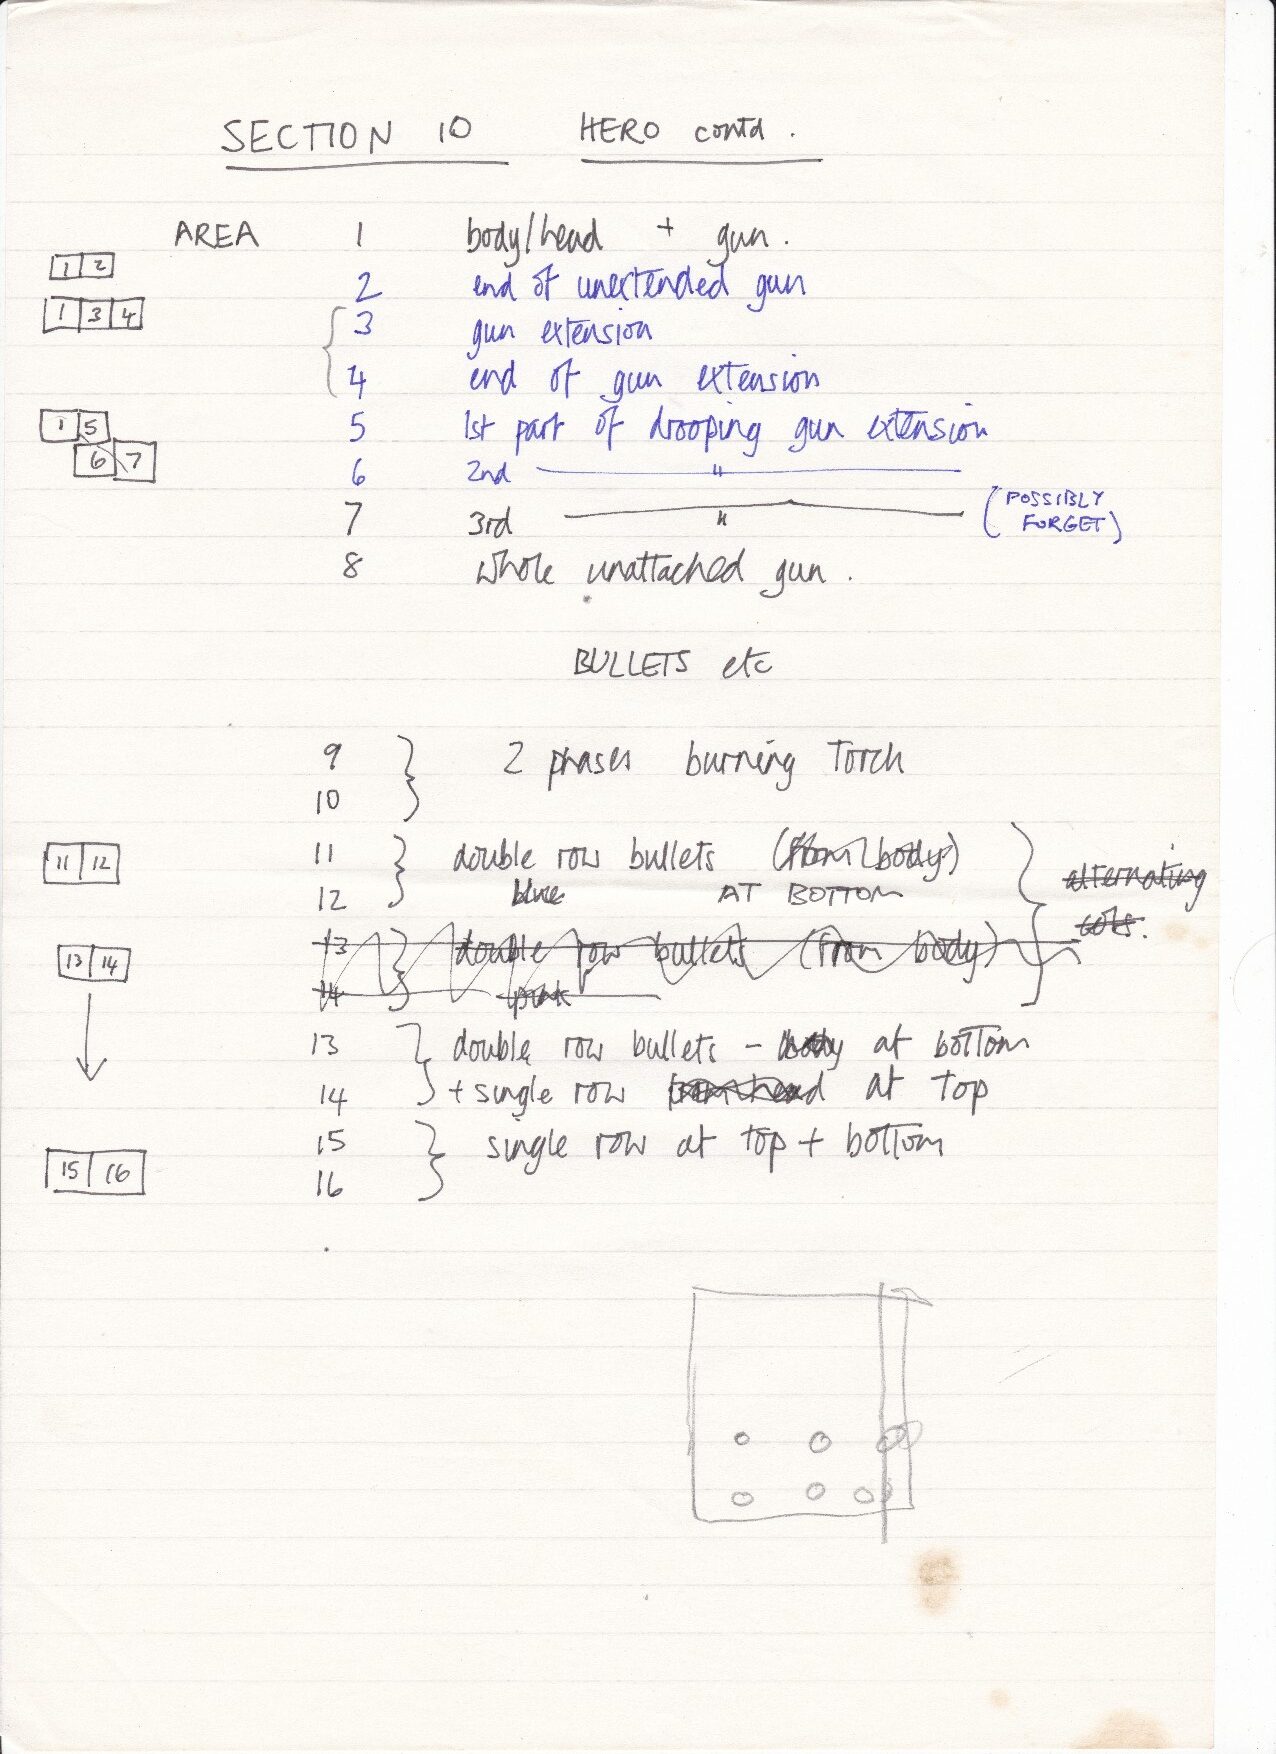 SECTION 10 HERO contd.
AREA 1 body/head + gun.
1 2
2 end of unextended gun
1 3 4
3 gun extension
4 end of gun extension
1 5
5 1st part of drooping gun extension
6 7
6 2nd "
7 3rd " (POSSIBLY FORGET)
8 whole unattached gun.
BULLETS etc
9 2 phases burning Torch
10
11 12
11 double row bullets (from body)
alternating
12 blue AT BOTTOM
cols.
13 double row bullets (from body)
13 14
14 pink
13 double row bullets - body at bottom
14 + single row from head at top
15 single row at top + bottom
15 16
16